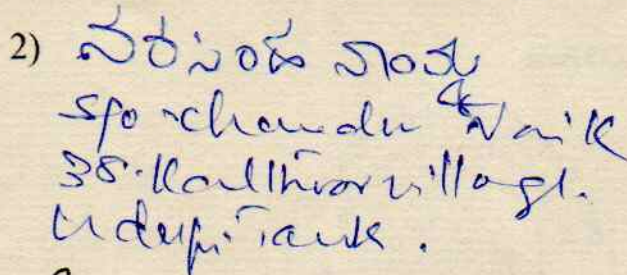 2) ನರಸಿಂಹ ನಾಯ್ಕ
S/o chandu Naik
38. Kalthur village.
Udupi Taluk.